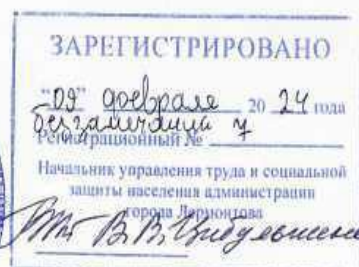 ЗАРЕГИСТРИРОВАНО
"09" февраля 2024 года
без замечаний 7
Регистрационный №
Начальник управления труда и социальной
защиты населения администрации
города Лермонтова
В.В.